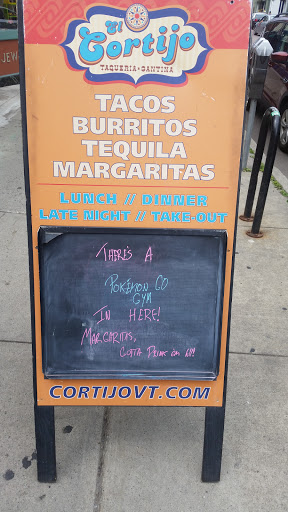 El
Cortijo
TAQUERIA • CANTINA
TACOS
BURRITOS
TEQUILA
MARGARITAS
LUNCH // DINNER
LATE NIGHT // TAKE-OUT
THERE'S A
POKÉMON GO
GYM
IN HERE!
MARGARITAS,
GOTTA DRINK EM All!
CORTIJOVT.COM
JEW